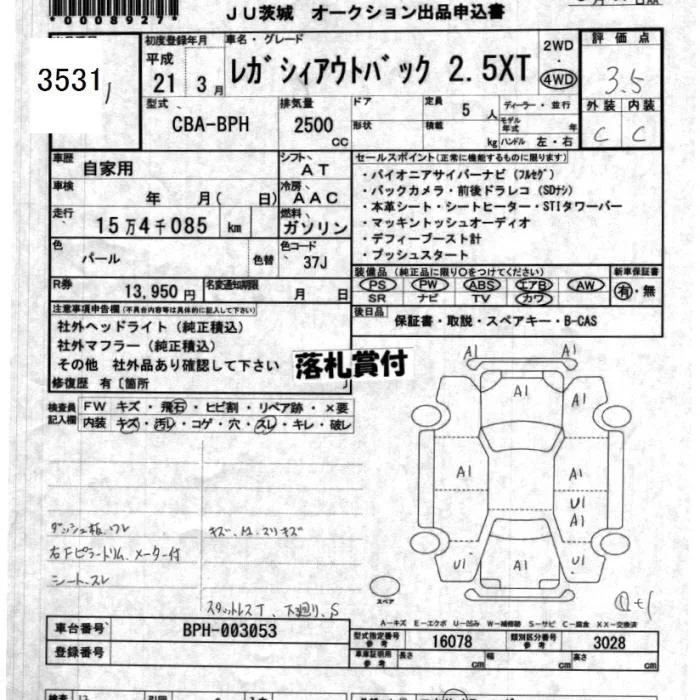 *00008927*
JU茨城 オークション出品申込書
3531
初度登録年月
平成
21 3月
車名・グレード
レガシィアウトバック 2.5XT
2WD
・
4WD
評価点
3.5
外装 内装
C C
型式
CBA-BPH
排気量
2500
cc
ドア
形状
定員
5 人
積載
kg
ディーラー・並行
モデル年式 年
ハンドル 左・右
車歴
自家用
シフト
AT
車検
年 月( 日)
冷房
AAC
走行
15万4千085 km
燃料
ガソリン
色
パール
色替
色コード
37J
R券
13,950円
名変通知期限
月 日
セールスポイント(正常に機能するものに限ります)
・パイオニアサイバーナビ(フルセグ)
・バックカメラ・前後ドラレコ(SDナシ)
・本革シート・シートヒーター・STIタワーバー
・マッキントッシュオーディオ
・デフィーブースト計
・プッシュスタート
装備品(純正品に限り○をつけてください)
PS PW ABS エアB AW
SR ナビ TV カワ
新車保証書
有・無
後日品
保証書・取説・スペアキー・B-CAS
注意事項申告欄(不具合内容等は具体的に記入して下さい)
社外ヘッドライト(純正積込)
社外マフラー(純正積込)
その他 社外品あり確認して下さい
落札賞付
修復歴 有〔箇所
検査員
記入欄
FW キズ・飛石・ヒビ割・リペア跡・×要
内装 キズ・汚レ・コゲ・穴・スレ・キレ・破レ
A1 A1
A1
A1 A1
A1 A1
U1
A1
U1 A1 U1
ダッシュ板、ワレ
右Fピラートリム、メーター付
シート、スレ
スペア
A-キズ E-エクボ U-凹み W-補修跡 S-サビ C-腐食 XX-交換済
車台番号
BPH-003053
登録番号
型式指定番号
参考
16078
類別区分番号
参考
3028
車庫証明用
参考
長さ cm
幅 cm
高さ cm